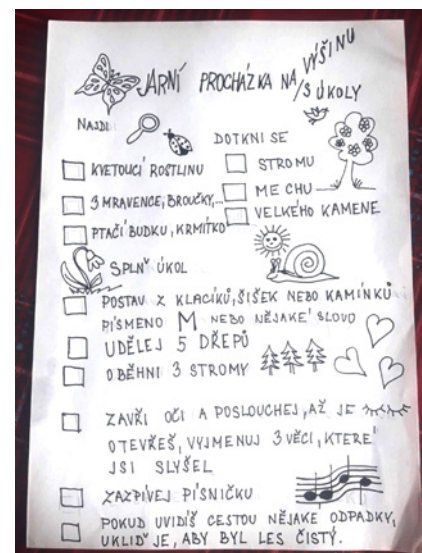 JARNÍ PROCHÁZKA NA VÝŠINU
/S ÚKOLY
NAJDI
KVETOUCÍ ROSTLINU
3 MRAVENCE, BROUČKY,...
PTAČÍ BUDKU, KRMÍTKO
DOTKNI SE
STROMU
MECHU
VELKÉHO KAMENE
SPLŇ ÚKOL
POSTAV Z KLACÍKŮ, ŠIŠEK NEBO KAMÍNKŮ
PÍSMENO M NEBO NĚJAKÉ SLOVO
UDĚLEJ 5 DŘEPŮ
OBĚHNI 3 STROMY
ZAVŘI OČI A POSLOUCHEJ, AŽ JE
OTEVŘEŠ, VYJMENUJ 3 VĚCI, KTERÉ
JSI SLYŠEL
ZAZPÍVEJ PÍSNIČKU
POKUD UVIDÍŠ CESTOU NĚJAKÉ ODPADKY,
UKLIĎ JE, ABY BYL LES ČISTÝ.